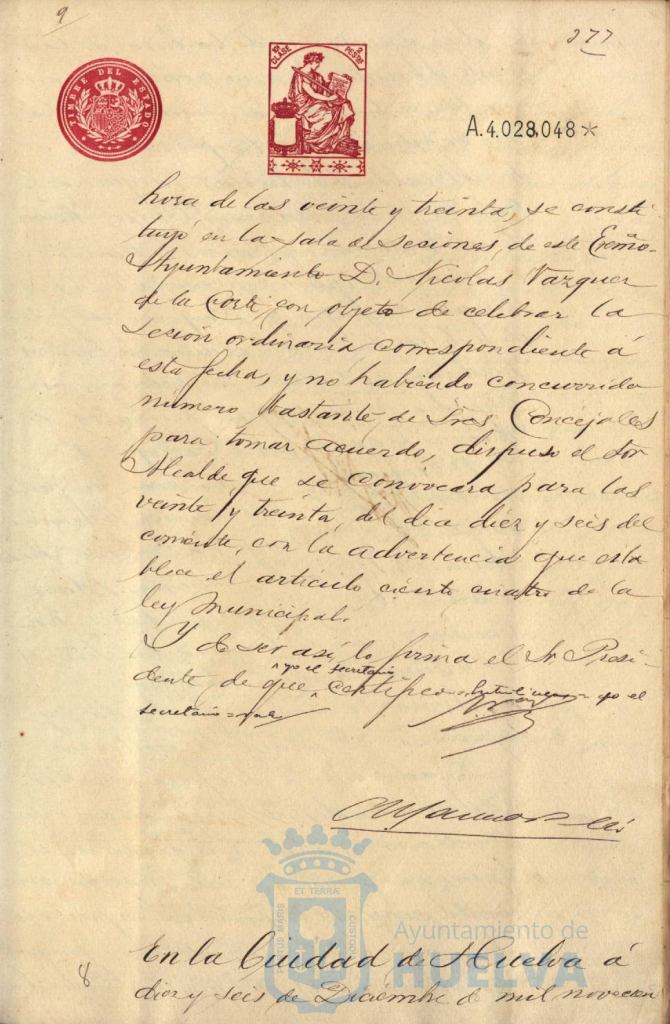 9
277
TIMBRE DEL ESTADO
CLASE
2 PESTAS
A.4.028,048*
hora de las veinte y treinta, se consti
tuyó en la sala de sesiones, de este Excmo.
Ayuntamiento D. Nicolas Vazquez
de la Corte, con objeto de celebrar la
sesión ordinaria correspondiente á
esta fecha, y no habiendo concurrido
número bastante, de Sres Concejales
para tomar acuerdo, dispuso el Sor
Alcalde que se convocara para las
veinte y treinta, del dia diez y seis del
corriente, con la advertencia que esta
blece el artículo ciento cuatro de la
ley Municipal.
Y de ser así lo firma el Sr. Presi-
yo el secretario
dente, de que certifico = Entrelineas = yo el
secretario = vale
En la Ciudad de Huelva á
8
diez y seis de Diciembre de mil novecien
ET TERRAE
MARIS
CUSTODIA
Ayuntamiento de
HUELVA